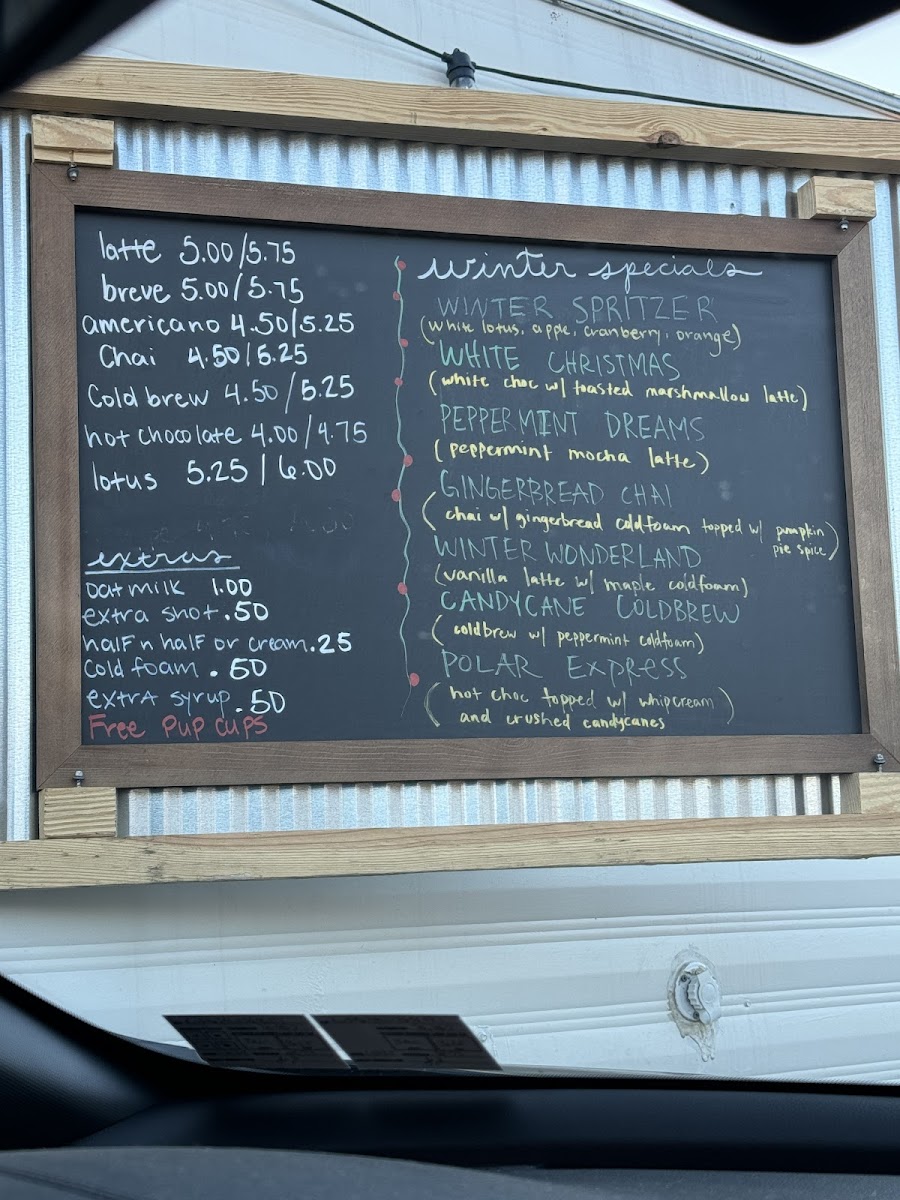 latte 5.00/5.75
breve 5.00/5.75
americano 4.50/5.25
Chai 4.50/5.25
Cold brew 4.50/5.25
hot chocolate 4.00/4.75
lotus 5.25/6.00
extras
oat milk 1.00
extra shot .50
half n half or cream .25
cold foam .50
extra syrup .50
Free Pup Cups
winter specials
WINTER SPRITZER
(white lotus, apple, cranberry, orange)
WHITE CHRISTMAS
(white choc w/ toasted marshmallow latte)
PEPPERMINT DREAMS
(peppermint mocha latte)
GINGERBREAD CHAI
(chai w/ gingerbread coldfoam topped w/ pumpkin
pie spice)
WINTER WONDERLAND
(vanilla latte w/ maple coldfoam)
CANDYCANE COLDBREW
(coldbrew w/ peppermint coldfoam)
POLAR EXPRESS
(hot choc topped w/ whipcream)
and crushed candycanes